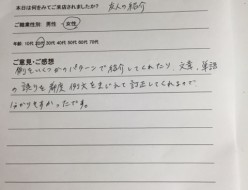 本日は何をみてご来店されましたか? 友人の紹介
ご職業性別 男性 女性
年齢 10代 20代 30代 40代 50代 60代 70代
ご意見・ご感想
例をいくつかのパターンで紹介してくれたり、文章、単語
の誤りを都度 例文をまじえて訂正してくれるので
分かりやすかったです。